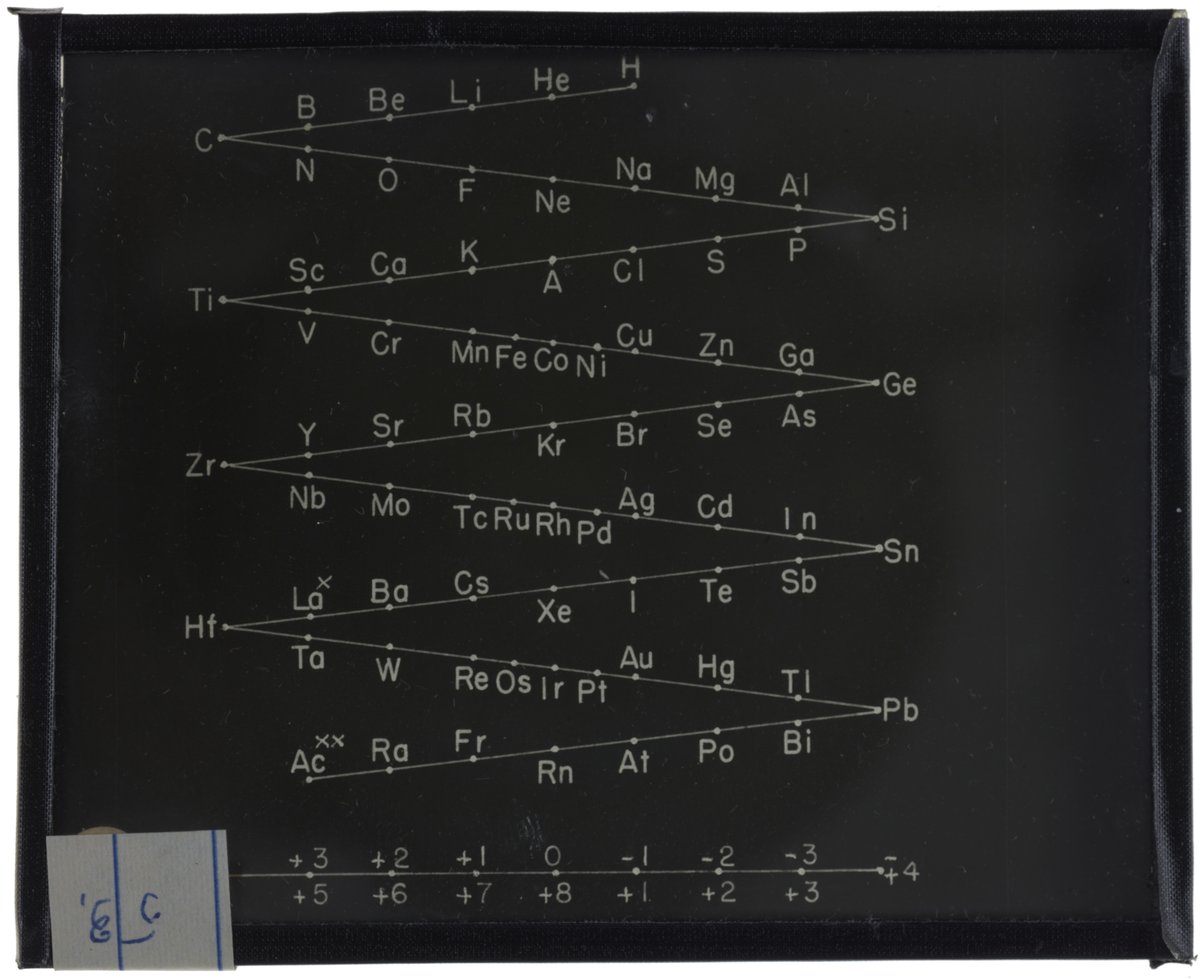 H
He
Li
Be
B
C
N
O
F
Ne
Na
Mg
Al
Si
P
S
Cl
A
K
Ca
Sc
Ti
V
Cr
Mn Fe Co Ni
Cu
Zn
Ga
Ge
As
Se
Br
Kr
Rb
Sr
Y
Zr
Nb
Mo
Tc Ru Rh Pd
Ag
Cd
In
Sn
Sb
Te
I
Xe
Cs
Ba
La×
Hf
Ta
W
Re Os Ir Pt
Au
Hg
Tl
Pb
Bi
Po
At
Rn
Fr
Ra
Ac××
+3 +2 +1 0 -1 -2 -3 -
+5 +6 +7 +8 +1 +2 +3 +4